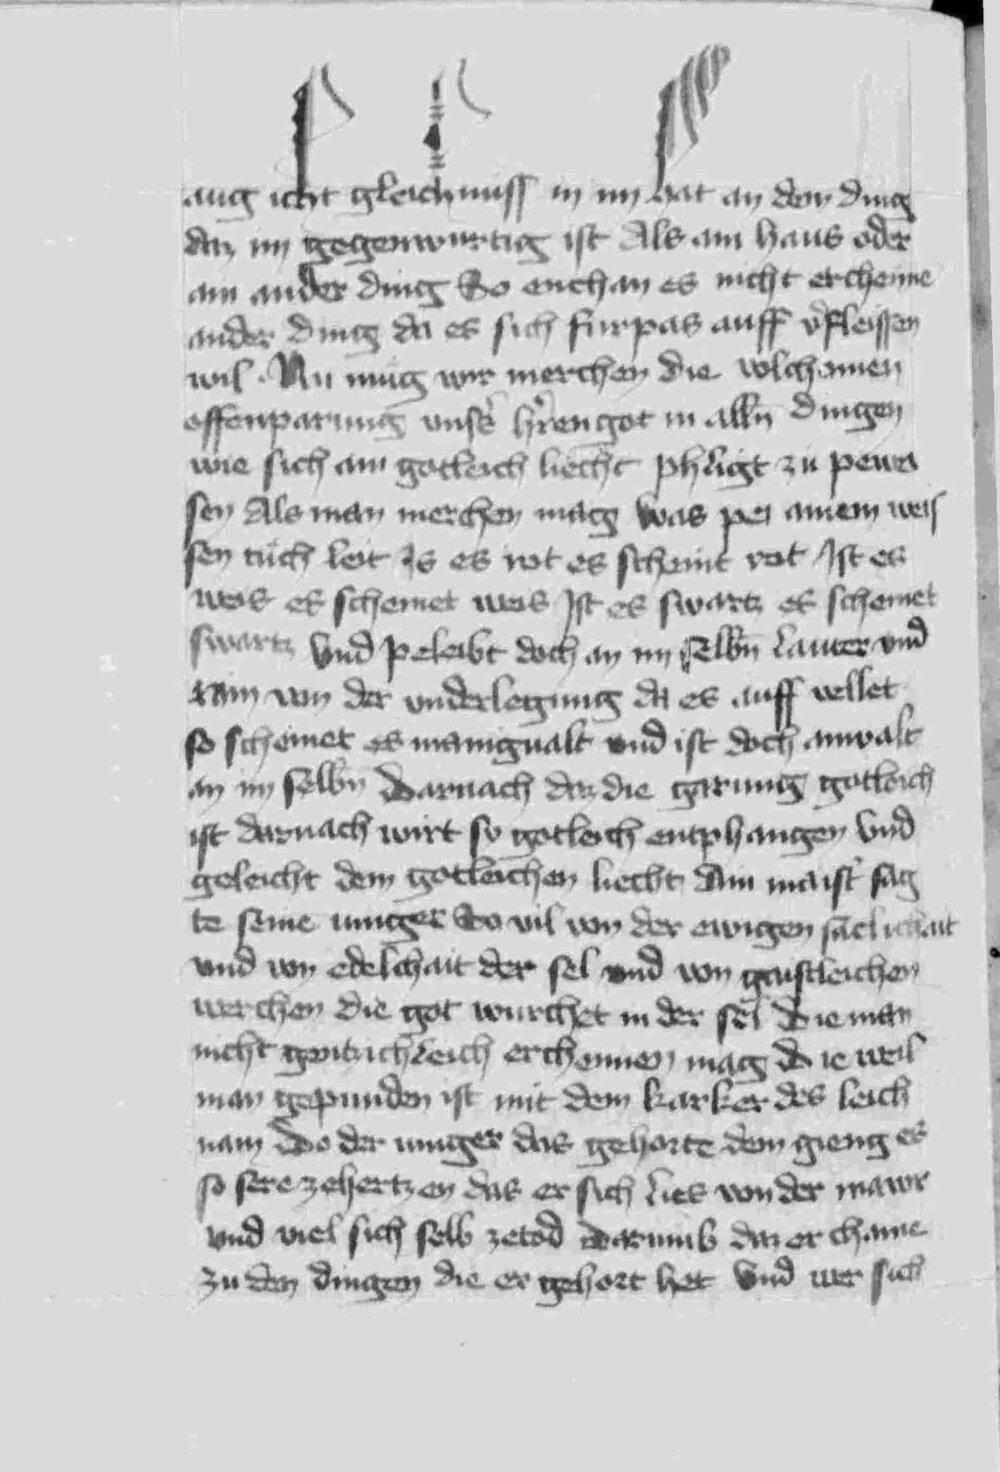 aug icht gleichnuss in im hat an dem ding
daz im gegenwurtig ist Als ain haus oder
ain ander ding So enchan es nicht erchenne
ander ding da es sich furpas auff vͦfleissen
wil · Nu mug wir merchen die volchomen
offenparung vnsͤr hͤren got in alln̄ dingen
wie sich ain gotleich liecht phligt zu pewei
sen Als man merchen mag was pei ainem weis
sen tuch leit Is es rot es scheint rot Ist es
weis es scheinet weis Ist es swartz es scheinet
swartz Vnd peleibt doch an im selbn̄ lauter vnd
rain von der vnderlegung da es auff vellet
so scheinet es manigualt vnd ist doch ainualt
an im selbn̄ Darnach daz die gerung gotleich
ist darnach wirt so gotleich entphangen Vnd
geleicht dem gotleichen liecht Ain maistͤ sag
te seine iunger So vil von der ewigen sälichait
vnd von edelchait der sel vnd von gaistleichen
werchen die got wurchet in der sel Die man
nicht genczichleich erchennen mag Die weil
man gepunden ist mit dem karker des leich
nam Do der iunger das gehorte dem gieng es
so sere zehertzen das er sich lies von der mawr
vnd viel sich selb zetod Darumb daz er chame
zu den dingen die er gehort het Vnd wer sich